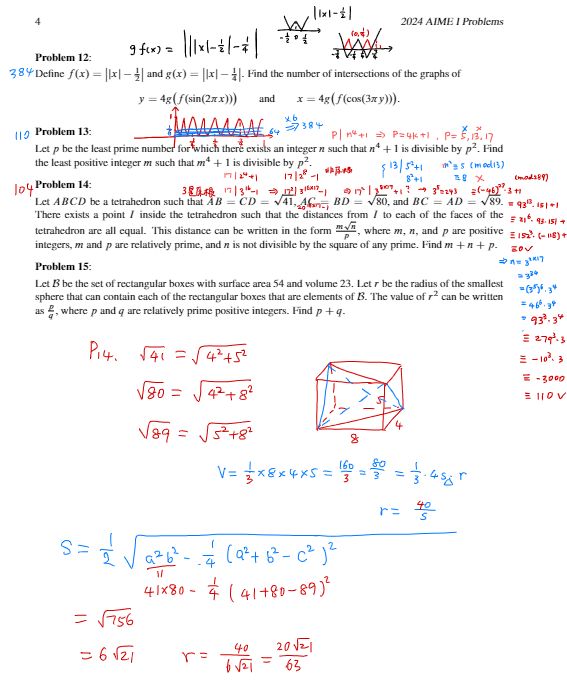 4
2024 AIME I Problems
g f(x) = |||x|-½|-¼|
||x|-½|
Problem 12:
384 Define f(x) = ||x| − ½| and g(x) = ||x| − ¼|. Find the number of intersections of the graphs of
y = 4g(f(sin(2πx))) and x = 4g(f(cos(3πy))).
64 ×6 ⇒ 384
Problem 13:
P | n⁴+1 ⇒ P=4k+1, P=5,13,17
110 Let p be the least prime number for which there exists an integer n such that n⁴ + 1 is divisible by p². Find
the least positive integer m such that m⁴ + 1 is divisible by p².
Problem 14:
104 Let ABCD be a tetrahedron such that AB = CD = √41, AC = BD = √80, and BC = AD = √89.
There exists a point I inside the tetrahedron such that the distances from I to each of the faces of the
tetrahedron are all equal. This distance can be written in the form m√n/p, where m, n, and p are positive
integers, m and p are relatively prime, and n is not divisible by the square of any prime. Find m + n + p.
Problem 15:
Let B be the set of rectangular boxes with surface area 54 and volume 23. Let r be the radius of the smallest
sphere that can contain each of the rectangular boxes that are elements of B. The value of r² can be written
as p/q, where p and q are relatively prime positive integers. Find p + q.
= 93³·3⁴
≡ 279³·3
≡ -10³·3
≡ -3000
≡ 110 √
P14. √41 = √4²+5²
√80 = √4²+8²
√89 = √5²+8²
5
4
8
V = 1/3 × 8 × 4 × 5 = 160/3 = 80/3 = 1/3 · 4S△ r
r = 40/S
S = 1/2 √a²b² - 1/4 (a²+b²-c²)²
41×80 - 1/4 (41+80-89)²
= √756
= 6√21 r = 40/6√21 = 20√21/63